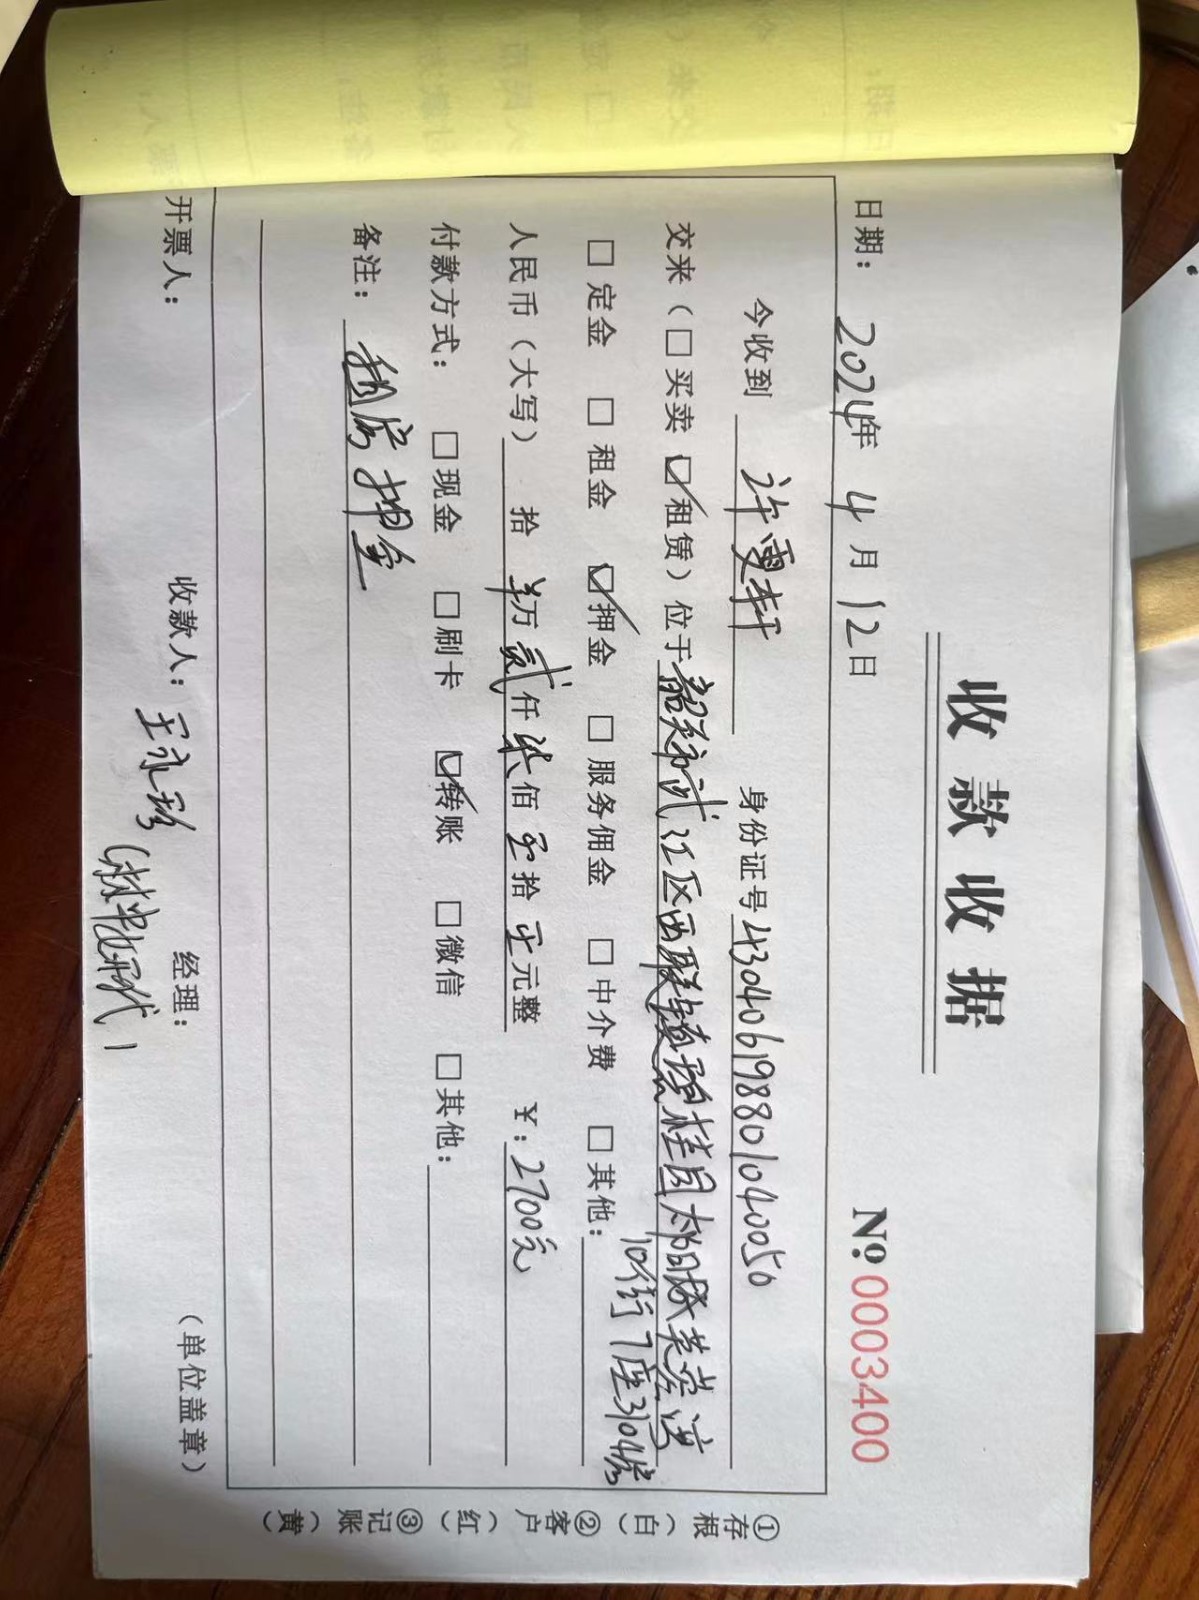 收款收据
日期： 2024年 4月 12日 № 0003400
今收到 许雯轩 身份证号 430406198801040050
交来（□买卖 ☑租赁）位于韶关市武江区西联镇碧桂园太阳城芙蓉湾
10街7座3104房
□定金 □租金 ☑押金 □服务佣金 □中介费 □其他：
人民币（大写） 拾 羊万 贰仟 柒佰 零拾 零元整 ¥：2700元
付款方式： □现金 □刷卡 ☑转账 □微信 □其他：
备注： 租房押金
开票人： 收款人： 王永珍 经理： （单位盖章）
①存根（白） ②客户（红） ③记账（黄）